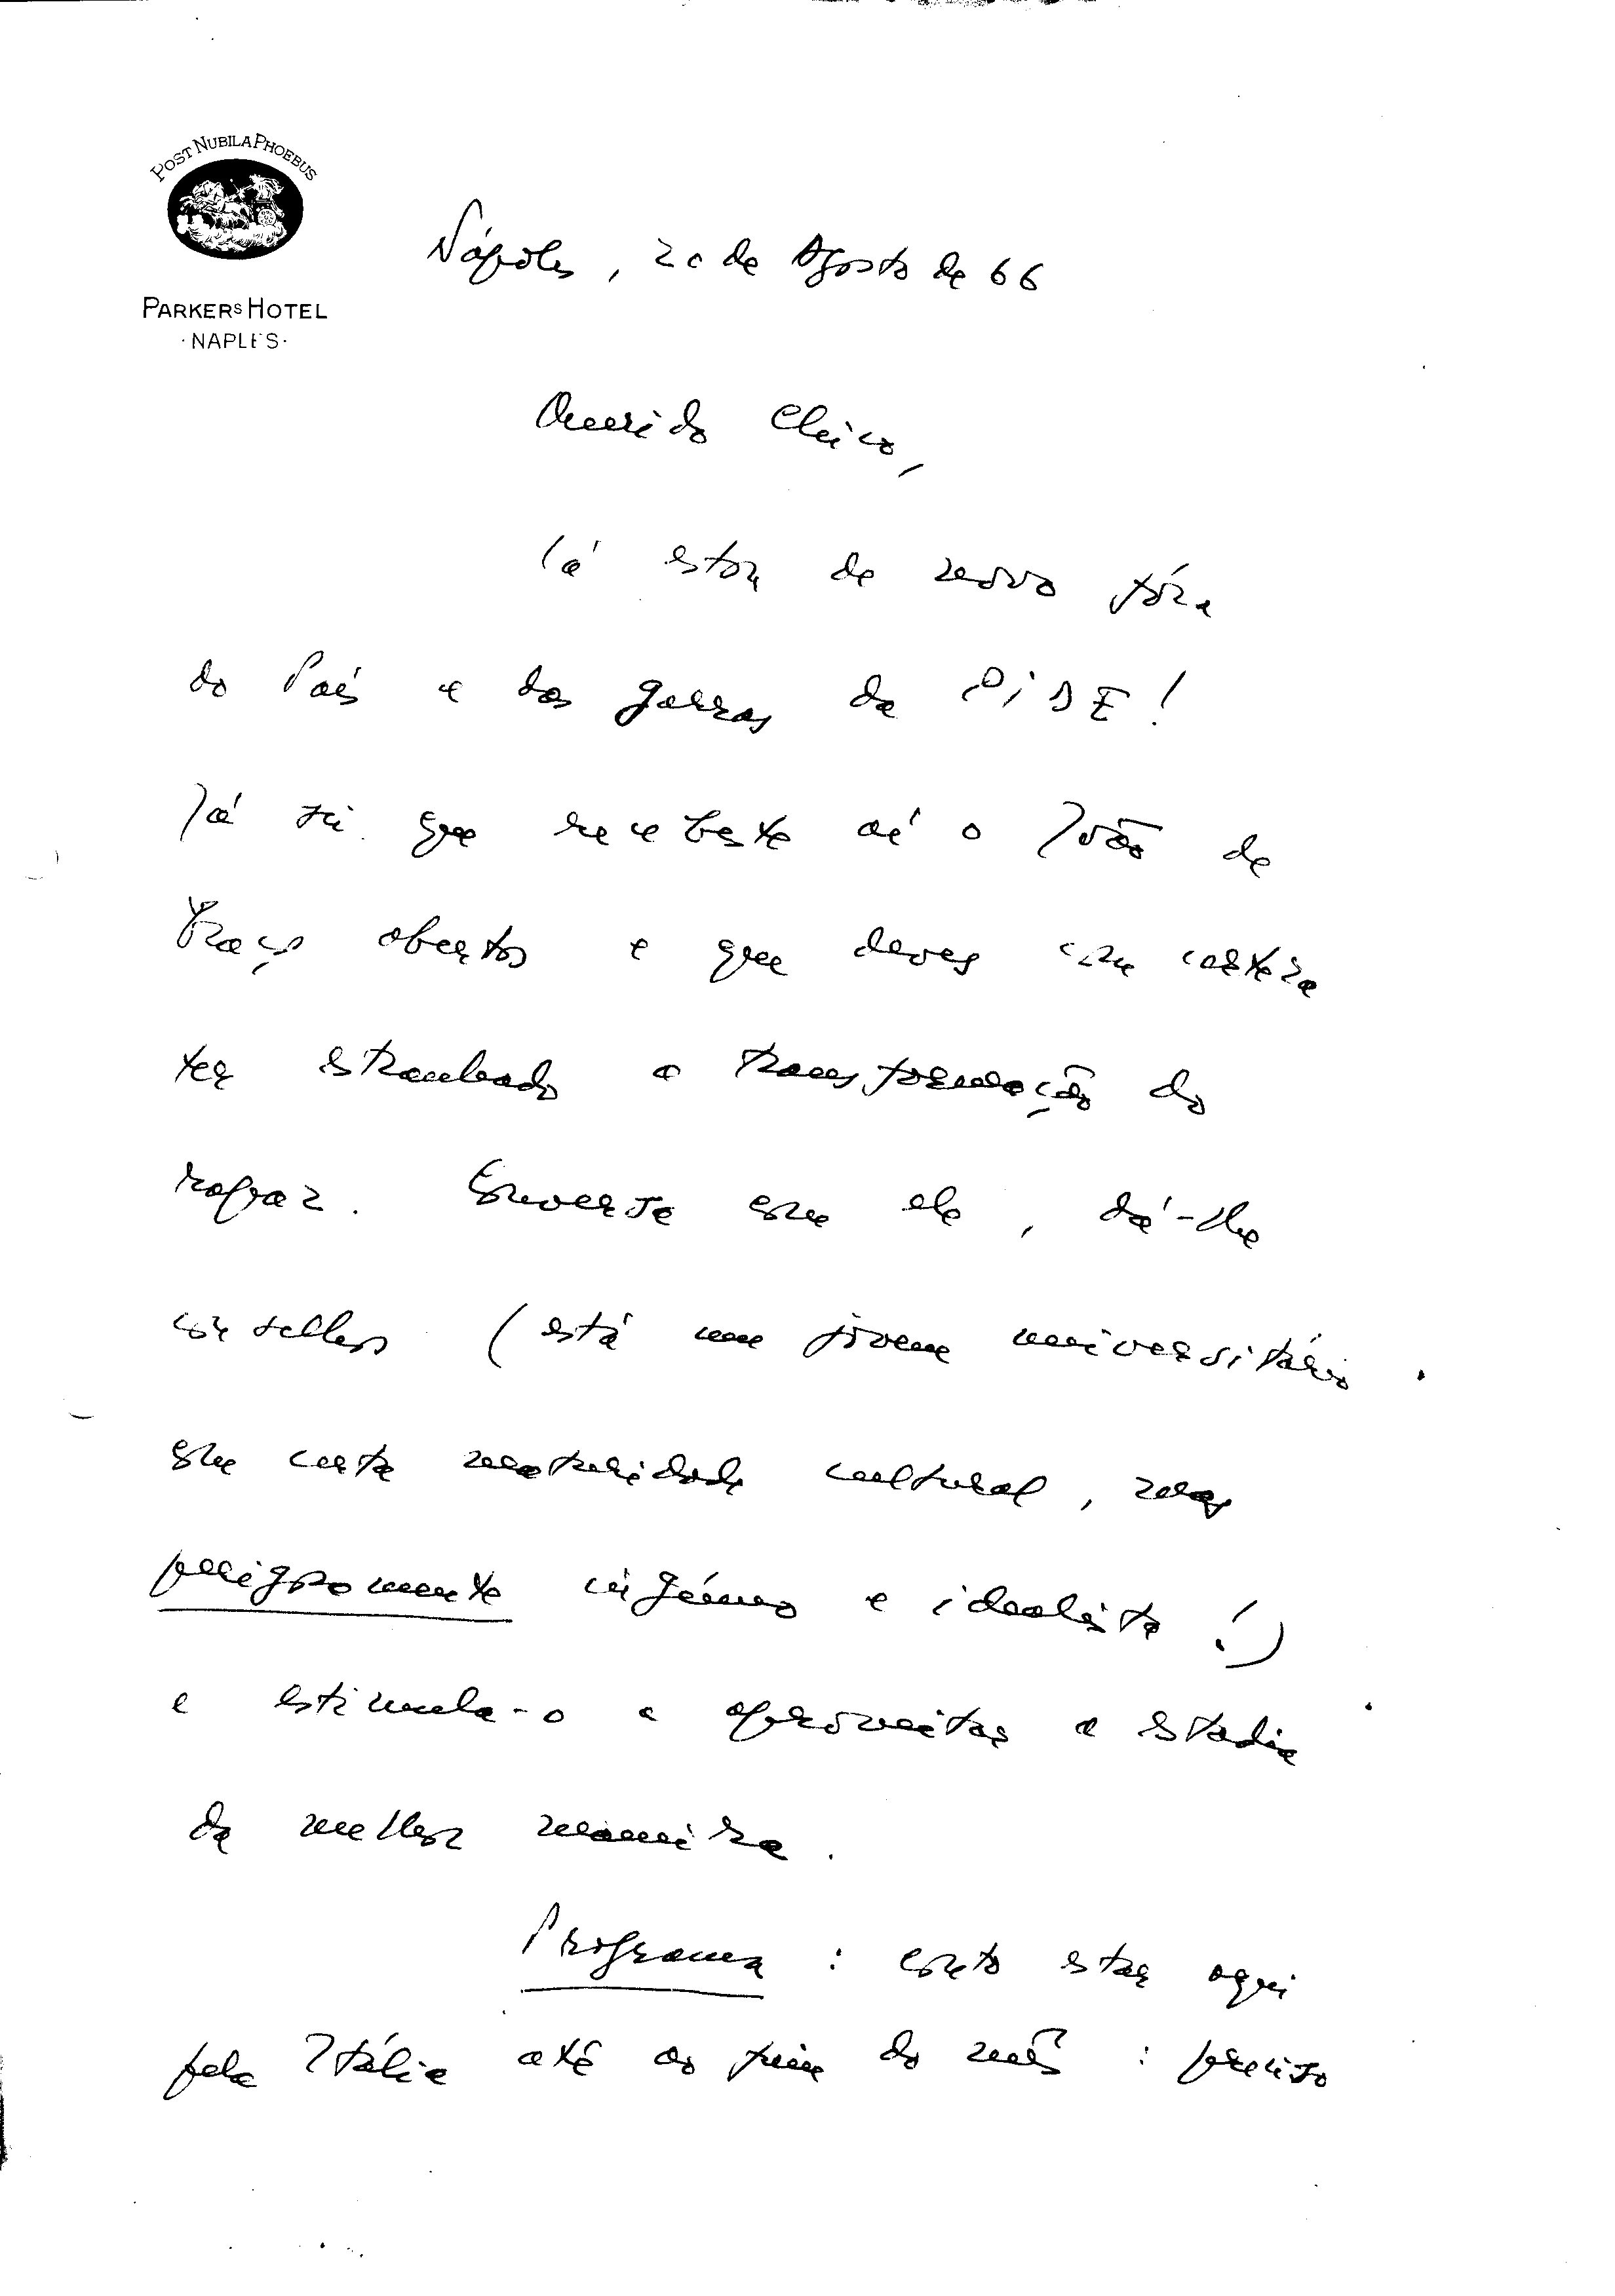 POST NUBILA PHOEBUS
PARKERS HOTEL
·NAPLES·
Nápoles, 20 de Agosto de 66
Querido Chico,
Cá estou de novo fóra
do País e das garras da PIDE!
Já sei que recebeste aí o João de
braços abertos e que deves com certeza
ter estranhado a transformação do
rapaz. Conversa com ele, dá-lhe
conselhos (está um jovem universitário
com certa maturidade cultural, mas
perigosamente ingénuo e idealista!)
e estimula-o a aproveitar a estadia
da melhor maneira.
Programa: conto estar aqui
pela Itália até ao fim do mês: preciso